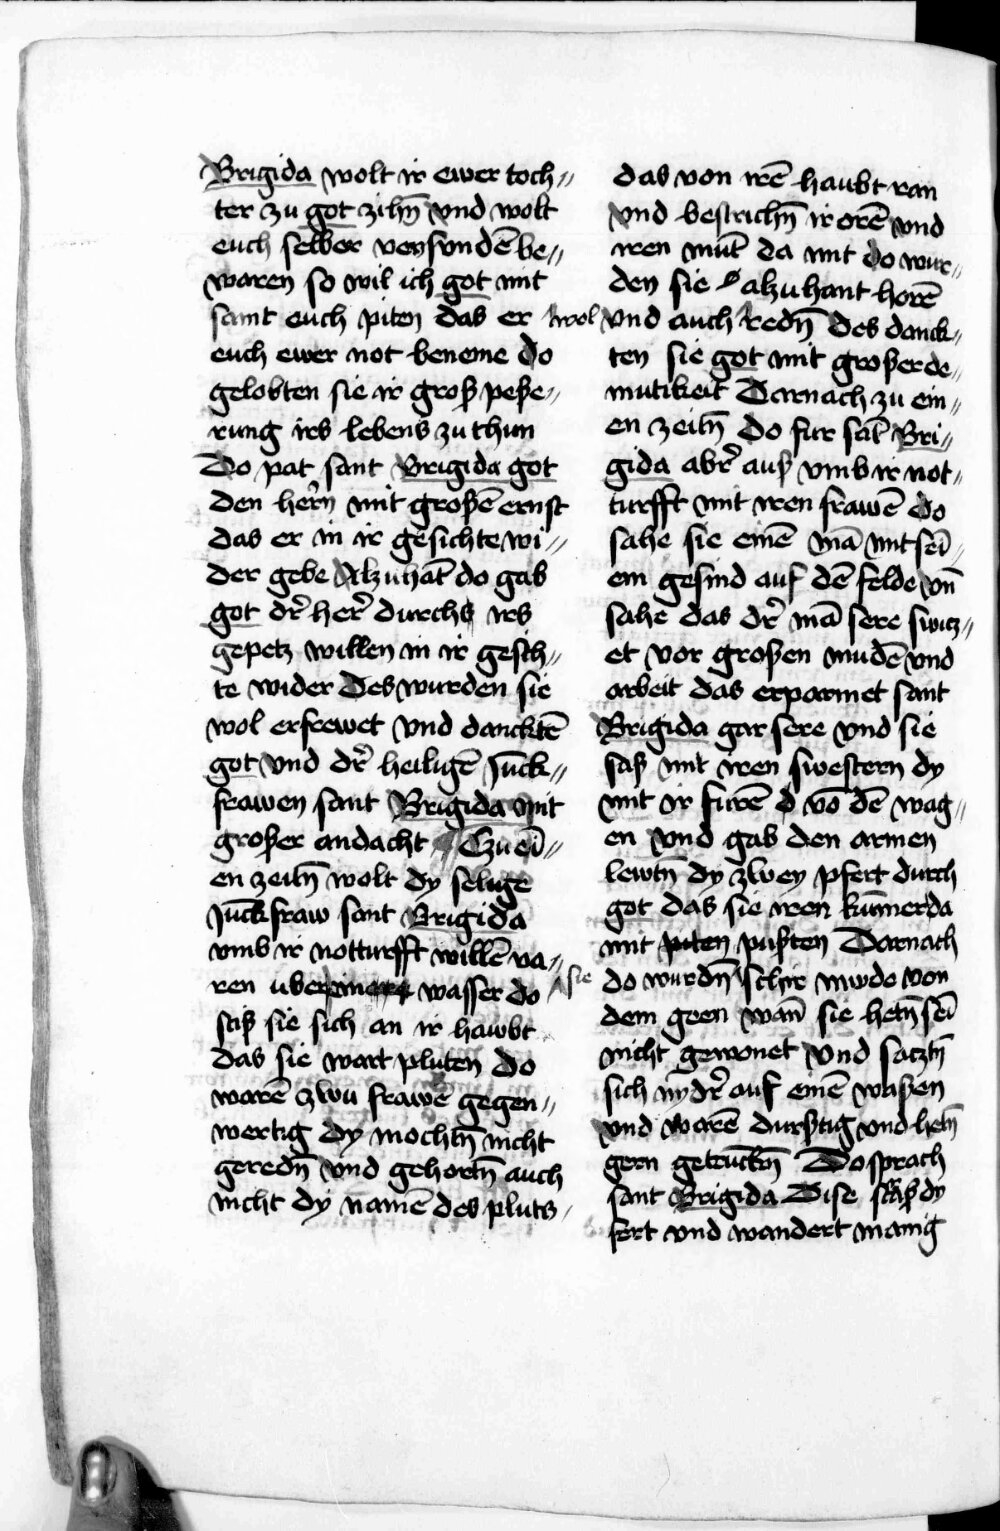 Brigida wolt ir ewer toch〃
ter zu got zihn̄ vnd wolt
euch selber von sundē be〃
waren so wil ich got mit
samt euch piten das er
euch ewer not beneme do
gelobten sie ir groß peße〃
rung irs lebens zu thun
Do pat sant Brigida got
den hern̄ mit großē ernst
das er in ir gesichte wi〃
der gebe Alzuhāt do gab
got dr̄ her̄ durchs irs
gepetz willen in ir gesich〃
te wider Des wurden sie
wol erfrewet vnd dancktē
got vnd dr̄ heiligē Junck〃
frawen sant Brigida mit
großer andacht Czu eī〃
en zeitn̄ wolt dy selige
Junckfraw sant Brigida
vmb ir notturfft willē va〃
ren uber wasser do
stiß sie sich an ir hawbt
das sie wart pluten do
warē zwu frawē gegen〃
wertig dy mochtn̄ nicht
geredn̄ vnd gehortn̄ auch
nicht dy namē des pluts
das von irē haubt ran
vnd bestrichn̄ ir orē vnd
iren mūt da mit do wur〃
den sie alzuhant horē
wol vnd auch redn̄ des danck〃
ten sie got mit großer de〃
mutikeit Darnach zu ein〃
en zeitn̄ do fur sāt Bri〃
gida abr̄ auß vmb ir not〃
turfft mit iren frawē do
sahe sie einē mā mit seī
em gesind auf dē felde vn̄
sahe das dr̄ mā sere switz〃
et vor großen mudē vnd
arbeit das erparmet sant
Brigida gar sere vnd sie
saß mit iren swestern dy
mit ir furē d vō dē wag〃
en vnd gab den armen
lewtn̄ dy zwey pfert durch
got das sie iren kūmer da
mit piten pußten Darnach
do wurdn̄ sie schir mude von
dem geen wan̄ sie hetn̄ seī
nicht gewonet vnd satztn̄
sich nydr̄ auf einē waßen
vnd warē durstig vnd hetn̄
gern getrūckn̄ Do sprach
sant Brigida Dise straß dy
fert vnd wandert manig